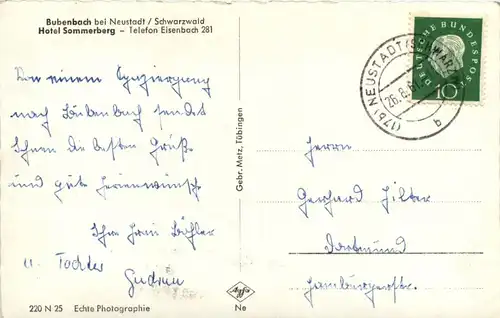 Bubenbach bei Neustadt / Schwarzwald
Hotel Sommerberg – Telefon Eisenbach 281
Von einem Spaziergang
nach Bubenbach sendet
Ihnen die besten Grüße
und gute Ferienwünsche
Ihre Frau
u. Tochter
Gudrun
220 N 25 Echte Photographie
Gebr. Metz, Tübingen
Agfa
Ne
DEUTSCHE BUNDESPOST
10
(17b) NEUSTADT (SCHWARZW)
26.8.60
b
Herrn
Gerhard
Dortmund
Hamburgerstr.